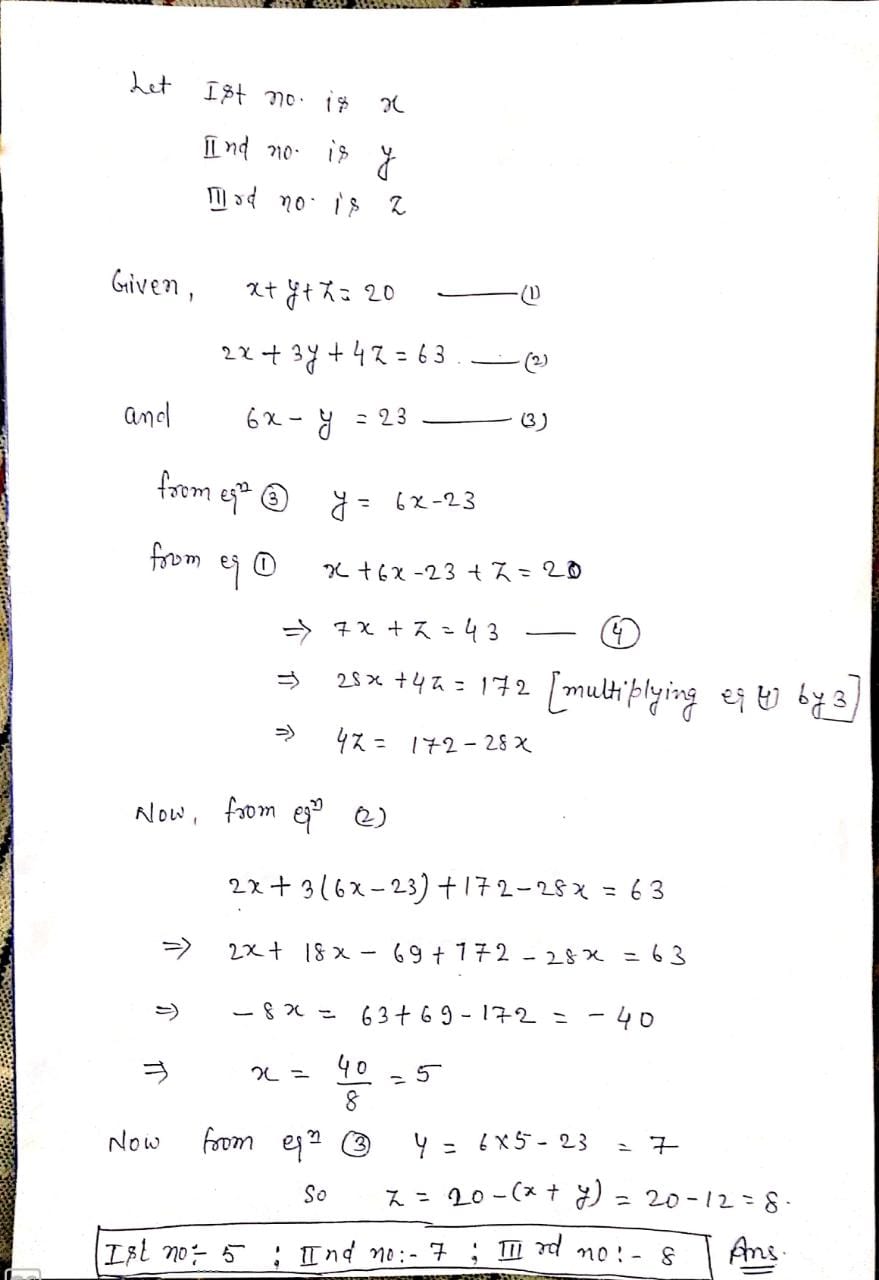 Let Ist no. is x
IInd no. is y
IIIrd no. is z
Given, x+y+z=20 —(1)
2x+3y+4z=63. —(2)
and 6x-y=23 —(3)
from eqn ③ y=6x-23
from eq ① x+6x-23+z=20
⇒ 7x+z=43 — ④
⇒ 28x+4z=172 [multiplying eq (4) by 3]
⇒ 4z=172-28x
Now, from eqn (2)
2x+3(6x-23)+172-28x=63
⇒ 2x+18x-69+172-28x=63
⇒ -8x=63+69-172=-40
⇒ x=40/8=5
Now from eqn ③ y=6x5-23=7
So z=20-(x+y)=20-12=8.
Ist no:- 5 ; IInd no:- 7 ; III rd no:- 8 Ans.